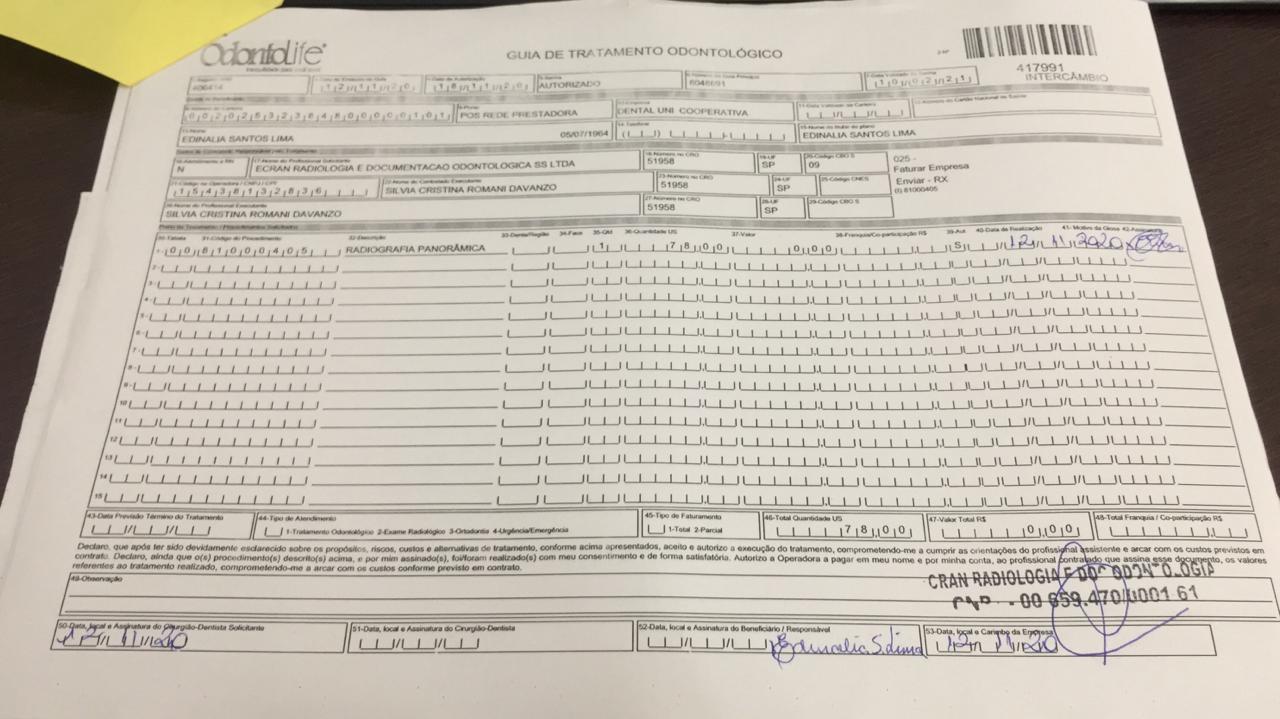 OdontoLife
GUIA DE TRATAMENTO ODONTOLÓGICO
2-Nº
417991
INTERCÂMBIO
406414
AUTORIZADO
6048691
1 0 / 0 2 / 2 1
POS REDE PRESTADORA
DENTAL UNI COOPERATIVA
13-Nome
EDINALIA SANTOS LIMA
05/07/1964
14-Telefone
EDINALIA SANTOS LIMA
N
17-Nome do Profissional Solicitante
ECRAN RADIOLOGIA E DOCUMENTACAO ODONTOLOGICA SS LTDA
18-Número no CRO
51958
19-UF
SP
20-Código CBO S
09
025 -
Faturar Empresa
Enviar - RX
(I) 81000405
1 5 4 3 8 1 3 2 8 3 6
22-Nome do Contratado Executante
SILVIA CRISTINA ROMANI DAVANZO
23-Número no CRO
51958
24-UF
SP
25-Código CNES
26-Nome do Profissional Executante
SILVIA CRISTINA ROMANI DAVANZO
27-Número no CRO
51958
28-UF
SP
29-Código CBO S
30-Tabela 31-Código do Procedimento 32-Descrição 33-Dente/Região 34-Face 35-Qtd 36-Quantidade US 37-Valor 38-Franquia/Co-participação R$ 39-Aut 40-Data de Realização 41- Motivo da Glosa 42-Assinatura
1- 0 0 8 1 0 0 0 4 0 5 RADIOGRAFIA PANORÂMICA 1 7 8 0 0 0 0 0 S 12 11 2020
2-
3-
4-
5-
6-
7-
8-
9-
10
11
12
13
14
15
43-Data Previsão Término do Tratamento
44-Tipo de Atendimento
1-Tratamento Odontológico 2-Exame Radiológico 3-Ortodontia 4-Urgência/Emergência
45-Tipo de Faturamento
1-Total 2-Parcial
46-Total Quantidade US
7 8 0 0
47-Valor Total R$
0 0 0
48-Total Franquia / Co-participação R$
Declaro, que após ter sido devidamente esclarecido sobre os propósitos, riscos, custos e alternativas de tratamento, conforme acima apresentados, aceito e autorizo a execução do tratamento, comprometendo-me a cumprir as orientações do profissional assistente e arcar com os custos previstos em
contrato. Declaro, ainda que o(s) procedimento(s) descrito(s) acima, e por mim assinado(s), foi/foram realizado(s) com meu consentimento e de forma satisfatória. Autorizo a Operadora a pagar em meu nome e por minha conta, ao profissional contratado que assina esse documento, os valores
referentes ao tratamento realizado, comprometendo-me a arcar com os custos conforme previsto em contrato.
49-Observação
CRAN RADIOLOGIA E DOC ODONTOLOGIA
00 659.470/0001 61
50-Data, local e Assinatura do Cirurgião-Dentista Solicitante
12 11 20
51-Data, local e Assinatura do Cirurgião-Dentista
52-Data, local e Assinatura do Beneficiário / Responsável
Edinalia S. Lima
53-Data, local e Carimbo da Empresa
12 11 20